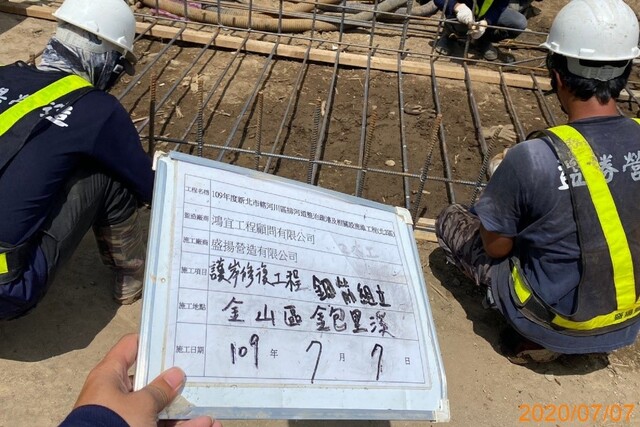 工程名稱 109年度新北市轄河川區排河道整治疏濬及相關設施工程(北2區)
監造廠商 鴻宜工程顧問有限公司
施工廠商 盛揚營造有限公司
施工項目 護岸修復工程 鋼筋組立
施工地點 金山區 金包里溪
施工日期 109 年 7 月 7 日
2020/07/07